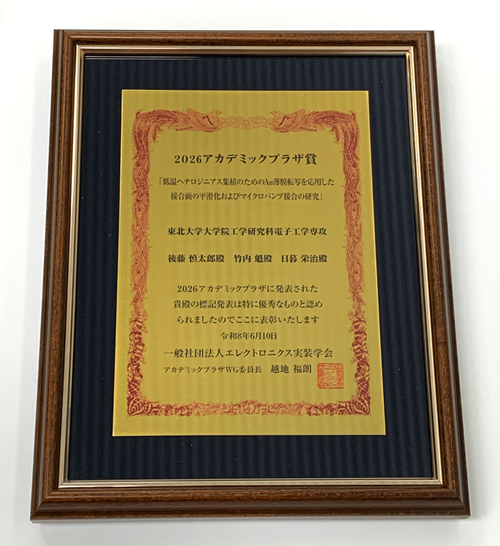 2026アカデミックプラザ賞
「低温ヘテロジニアス集積のためのAu薄膜転写を応用した
接合面の平滑化およびマイクロバンプ接合の研究」
東北大学大学院工学研究科電子工学専攻
後藤 慎太郎殿 竹内 魁殿 日暮 栄治殿
2026アカデミックプラザに発表された
貴殿の標記発表は特に優秀なものと認め
られましたのでここに表彰いたします
令和8年6月10日
一般社団法人エレクトロニクス実装学会
アカデミックプラザWG委員長 越地 福朗